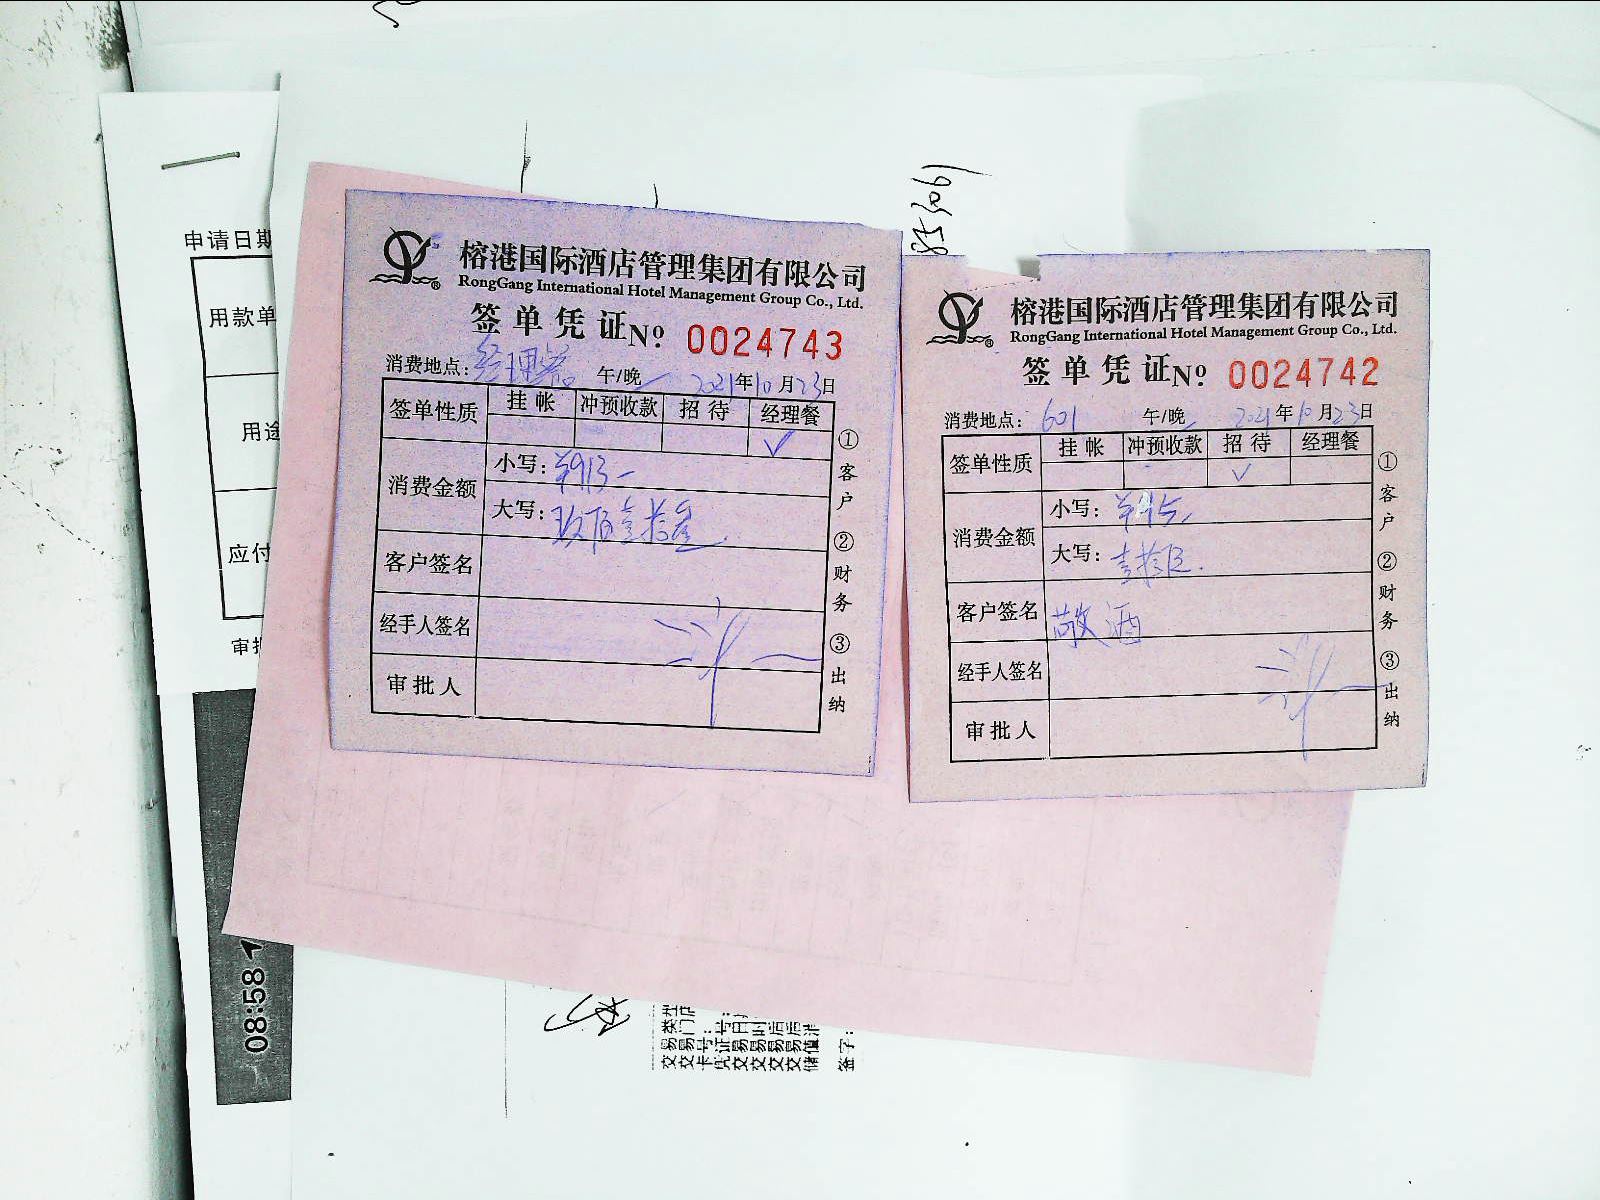 853061
申请日期
用款单
用途
应付
审批
08:58
榕港国际酒店管理集团有限公司
RongGang International Hotel Management Group Co., Ltd.
签单凭证 № 0024743
消费地点：经理餐 午/晚 2021年10月23日
签单性质 挂帐 冲预收款 招待 经理餐
✓
消费金额
小写：¥913
大写：玖佰壹拾叁
客户签名
经手人签名
审批人
①客户 ②财务 ③出纳
榕港国际酒店管理集团有限公司
RongGang International Hotel Management Group Co., Ltd.
签单凭证 № 0024742
消费地点：601 午/晚 2021年10月23日
签单性质 挂帐 冲预收款 招待 经理餐
✓
消费金额
小写：
大写：
客户签名 敬酒
经手人签名
审批人
①客户 ②财务 ③出纳
签字：